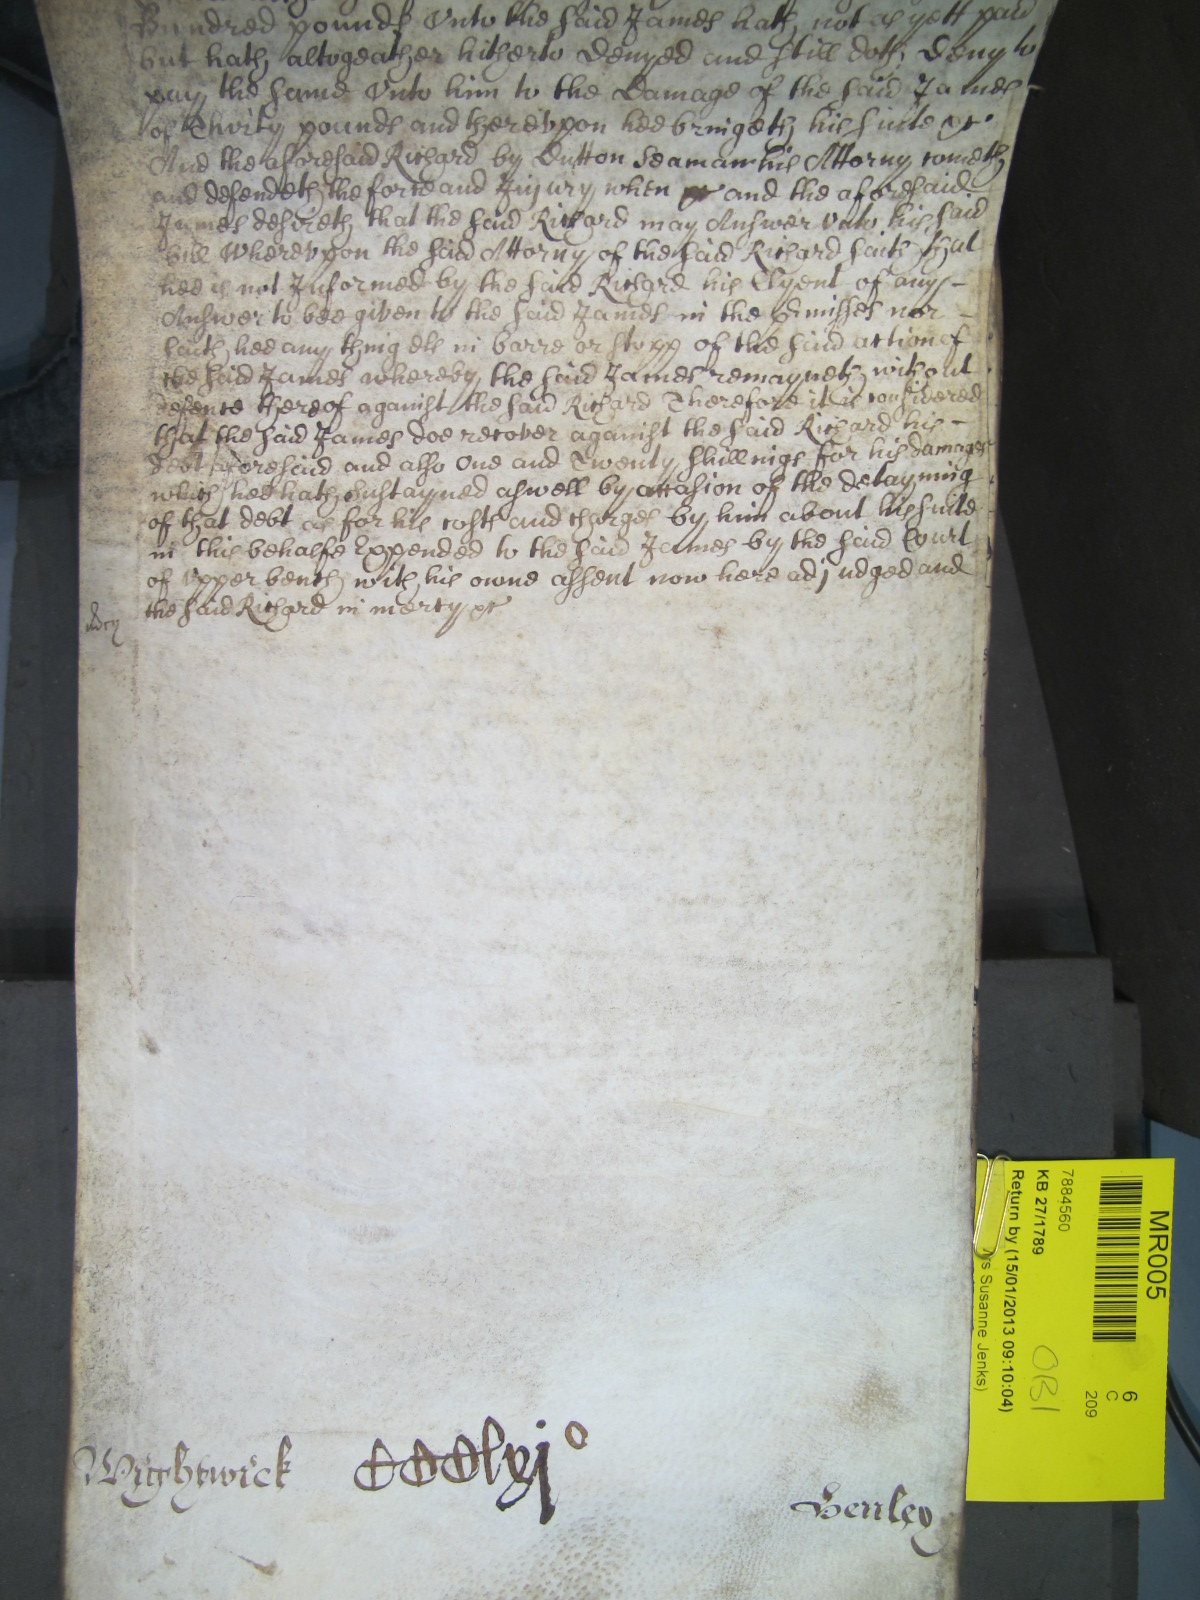 hundred pounds Unto the said James hath not as yett paid
but hath altogeather hitherto denyed and still doth deny to
pay the same Unto him to the Damage of the said James
of Thirty pounds and thereuppon hee bringeth his suite &c
And the aforesaid Richard by Dutton Seaman his Attorny cometh
and defendeth the force and Injury when &c and the aforesaid
James desireth that the said Richard may Answer Unto his said
bill Whereuppon the said Attorny of the said Richard saith that
hee is not Informed by the said Richard his Clyent of any
Answer to bee given to the said James in the premisses nor
saith hee any thing els in barre or stopp of the said action of
the said James whereby the said James remayneth without
defence thereof against the said Richard Therefore it is considered
that the said James doe recover against the said Richard his
debt aforesaid and also One and Twenty shillings for his damages
which hee hath sustayned aswell by occasion of the detayning
of that debt as for his costs and charges by him about his suite
in this behalfe Expended to the said James by the said Court
of Upper bench with his owne assent now here adjudged and
the said Richard in mercy &c
mercy
Wightwick
Henley
MR005
6
C
209
7884560
KB 27/1789
OB1
Return by (15/01/2013 09:10:04)
Susanne Jenks)